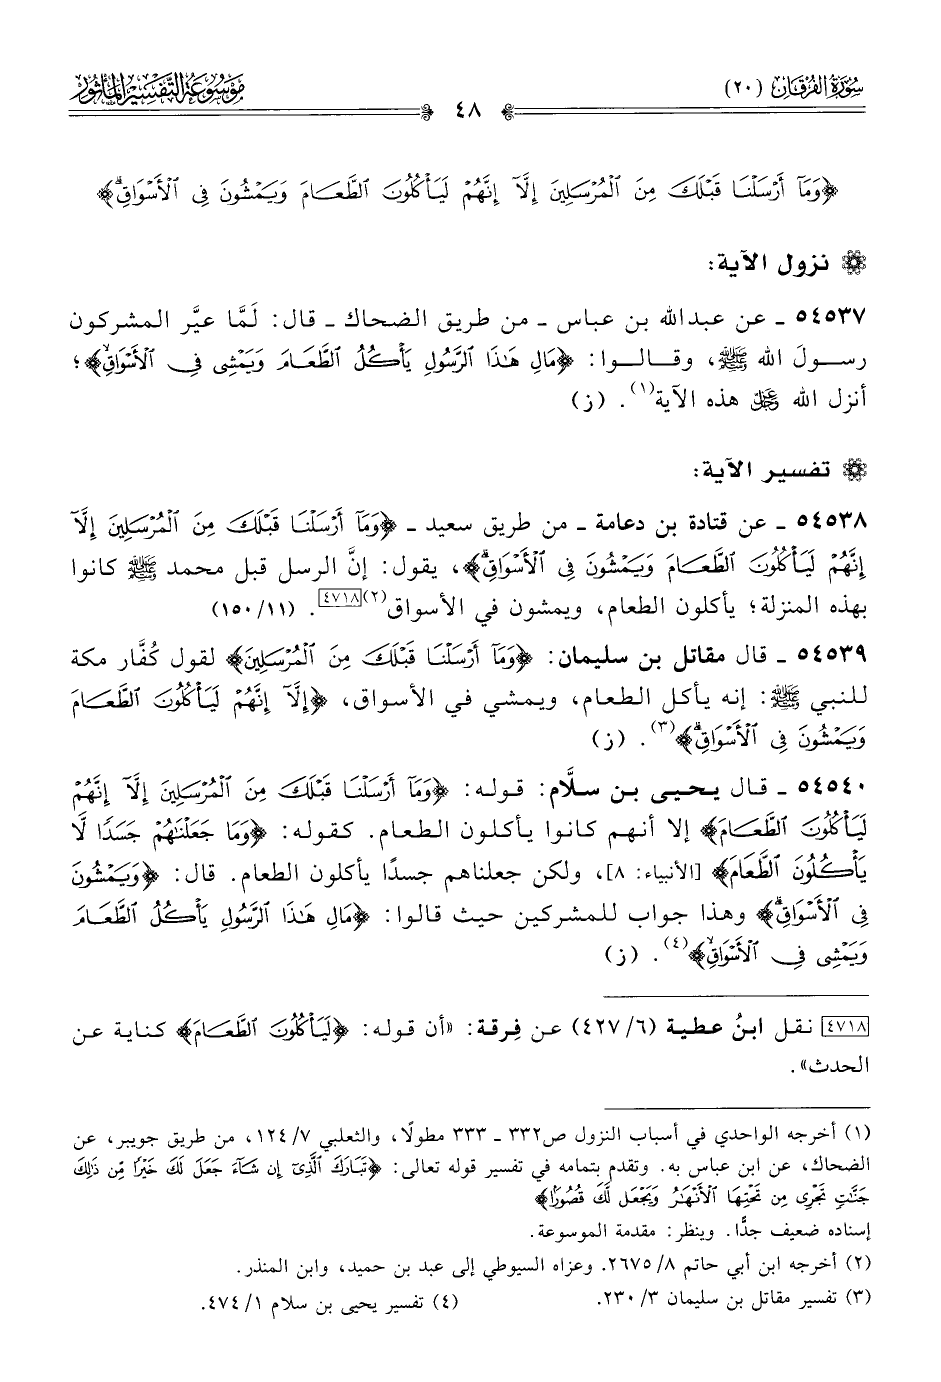 سُورَةُ الفُرْقَان (٢٠)
٤٨
مَوْسُوعَةُ التَّفْسِيرِ المَأْثُور
﴿وَمَآ أَرْسَلْنَا قَبْلَكَ مِنَ ٱلْمُرْسَلِينَ إِلَّآ إِنَّهُمْ لَيَأْكُلُونَ ٱلطَّعَامَ وَيَمْشُونَ فِى ٱلْأَسْوَاقِۗ﴾
نزول الآية:
٥٤٥٣٧ ـ عن عبدالله بن عباس ـ من طريق الضحاك ـ قال: لَمَّا عيَّر المشركون
رسولَ الله ﷺ، وقالوا: ﴿مَالِ هَٰذَا ٱلرَّسُولِ يَأْكُلُ ٱلطَّعَامَ وَيَمْشِى فِى ٱلْأَسْوَاقِۙ﴾؛
أنزل الله ﷿ هذه الآية(١). (ز)
تفسير الآية:
٥٤٥٣٨ ـ عن قتادة بن دعامة ـ من طريق سعيد ـ ﴿وَمَآ أَرْسَلْنَا قَبْلَكَ مِنَ ٱلْمُرْسَلِينَ إِلَّآ
إِنَّهُمْ لَيَأْكُلُونَ ٱلطَّعَامَ وَيَمْشُونَ فِى ٱلْأَسْوَاقِۗ﴾، يقول: إنَّ الرسل قبل محمد ﷺ كانوا
بهذه المنزلة؛ يأكلون الطعام، ويمشون في الأسواق(٢)[٤٧١٨]. (١١/ ١٥٠)
٥٤٥٣٩ ـ قال مقاتل بن سليمان: ﴿وَمَآ أَرْسَلْنَا قَبْلَكَ مِنَ ٱلْمُرْسَلِينَ﴾ لقول كُفَّار مكة
للنبي ﷺ: إنه يأكل الطعام، ويمشي في الأسواق، ﴿إِلَّآ إِنَّهُمْ لَيَأْكُلُونَ ٱلطَّعَامَ
وَيَمْشُونَ فِى ٱلْأَسْوَاقِۗ﴾(٣). (ز)
٥٤٥٤٠ ـ قال يحيى بن سلَّام: قوله: ﴿وَمَآ أَرْسَلْنَا قَبْلَكَ مِنَ ٱلْمُرْسَلِينَ إِلَّآ إِنَّهُمْ
لَيَأْكُلُونَ ٱلطَّعَامَ﴾ إلا أنهم كانوا يأكلون الطعام. كقوله: ﴿وَمَا جَعَلْنَٰهُمْ جَسَدًا لَّا
يَأْكُلُونَ ٱلطَّعَامَ﴾ [الأنبياء: ٨]، ولكن جعلناهم جسدًا يأكلون الطعام. قال: ﴿وَيَمْشُونَ
فِى ٱلْأَسْوَاقِۗ﴾ وهذا جواب للمشركين حيث قالوا: ﴿مَالِ هَٰذَا ٱلرَّسُولِ يَأْكُلُ ٱلطَّعَامَ
وَيَمْشِى فِى ٱلْأَسْوَاقِۙ﴾(٤). (ز)
[٤٧١٨] نقل ابنُ عطية (٦/ ٤٢٧) عن فِرقة: «أن قوله: ﴿لَيَأْكُلُونَ ٱلطَّعَامَ﴾ كناية عن
الحدث».
(١) أخرجه الواحدي في أسباب النزول ص٣٣٢ ـ ٣٣٣ مطولًا، والثعلبي ٧/ ١٢٤، من طريق جويبر، عن
الضحاك، عن ابن عباس به. وتقدم بتمامه في تفسير قوله تعالى: ﴿تَبَارَكَ ٱلَّذِىٓ إِن شَآءَ جَعَلَ لَكَ خَيْرًا مِّن ذَٰلِكَ
جَنَّٰتٍ تَجْرِى مِن تَحْتِهَا ٱلْأَنْهَٰرُ وَيَجْعَل لَّكَ قُصُورًۢا﴾
إسناده ضعيف جدًّا. وينظر: مقدمة الموسوعة.
(٢) أخرجه ابن أبي حاتم ٨/ ٢٦٧٥. وعزاه السيوطي إلى عبد بن حميد، وابن المنذر.
(٣) تفسير مقاتل بن سليمان ٣/ ٢٣٠. (٤) تفسير يحيى بن سلام ١/ ٤٧٤.